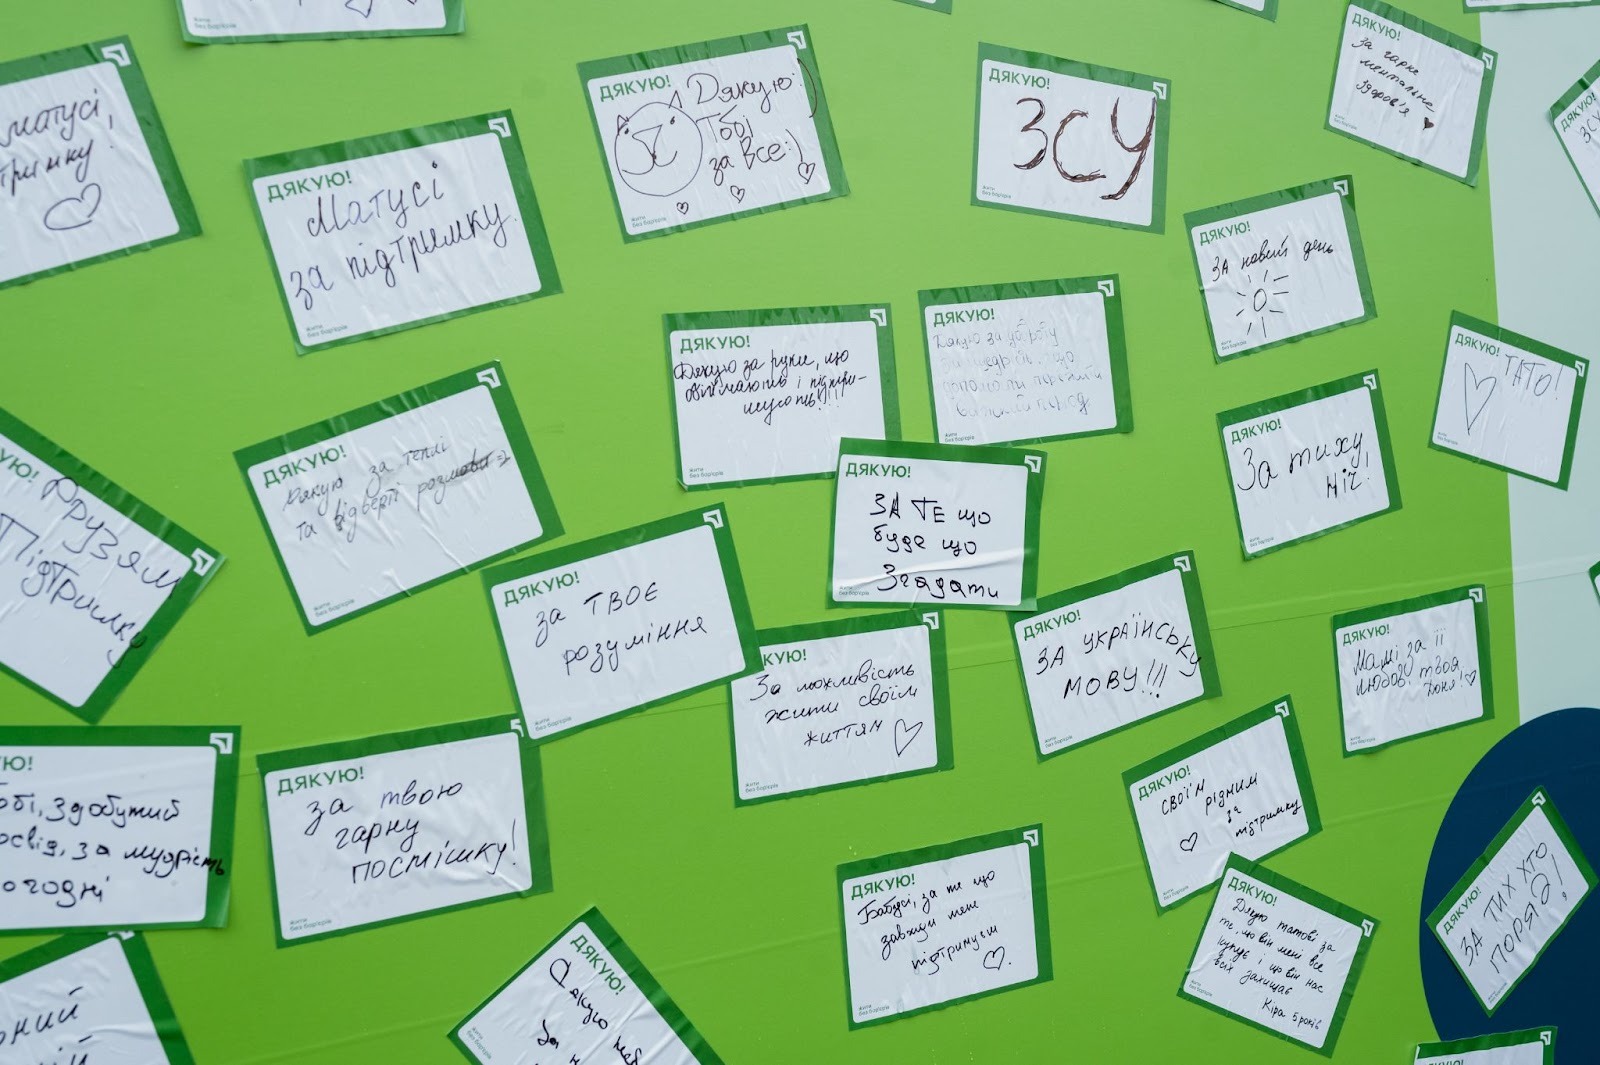 матусі,
ДЯКУЮ!
Матусі
за підтримку.
жити
без бар'єрів
ДЯКУЮ!
Дякую:)
Тобі
за все:)
жити
без бар'єрів
ДЯКУЮ!
ЗСУ
жити
без бар'єрів
ДЯКУЮ!
за гарне
ментальне
здоров'я
жити
без бар'єрів
ДЯКУЮ!
ЗСУ
ДЯКУЮ!
ЗА новий день
жити
без бар'єрів
ДЯКУЮ!
Дякую за руки, що
обіймають і підтри-
мують!!!!
жити
без бар'єрів
ДЯКУЮ!
Дякую за доброту
за щедрість, що
допомогли пережити
важкий період
жити
без бар'єрів
ДЯКУЮ!
ТАТО!
ДЯКУЮ!
Дякую за теплі
та відверті розмови =)
жити
без бар'єрів
ДЯКУЮ!
ЗА ТЕ що
буде що
Згадати
жити
без бар'єрів
ДЯКУЮ!
За тиху
ніч!
жити
без бар'єрів
Друзям
Підтримку
ДЯКУЮ!
за ТВОЄ
розуміння
жити
без бар'єрів
За можливість
жити своїм
життям
жити
без бар'єрів
ДЯКУЮ!
ЗА УКРАЇНСЬКУ
МОВУ!!!
жити
без бар'єрів
ДЯКУЮ!
Мамі за її
любов! твоя
доня!
жити
без бар'єрів
здобутий
за мудрість
ДЯКУЮ!
за твою
гарну
посмішку!
жити
без бар'єрів
ДЯКУЮ!
своїм рідним
за
підтримку
жити
без бар'єрів
ДЯКУЮ!
Бабусі, за те що
завжди мене
підтримуєш
жити
без бар'єрів
ДЯКУЮ!
Дякую татові за
те, що він мені все
купує і що він нас
всіх захищає
Кіра 5 років
жити
без бар'єрів
ДЯКУЮ!
ЗА ТИХ ХТО
ПОРЯД!
ДЯКУЮ!
Дякую
За
ДЯКУЮ!